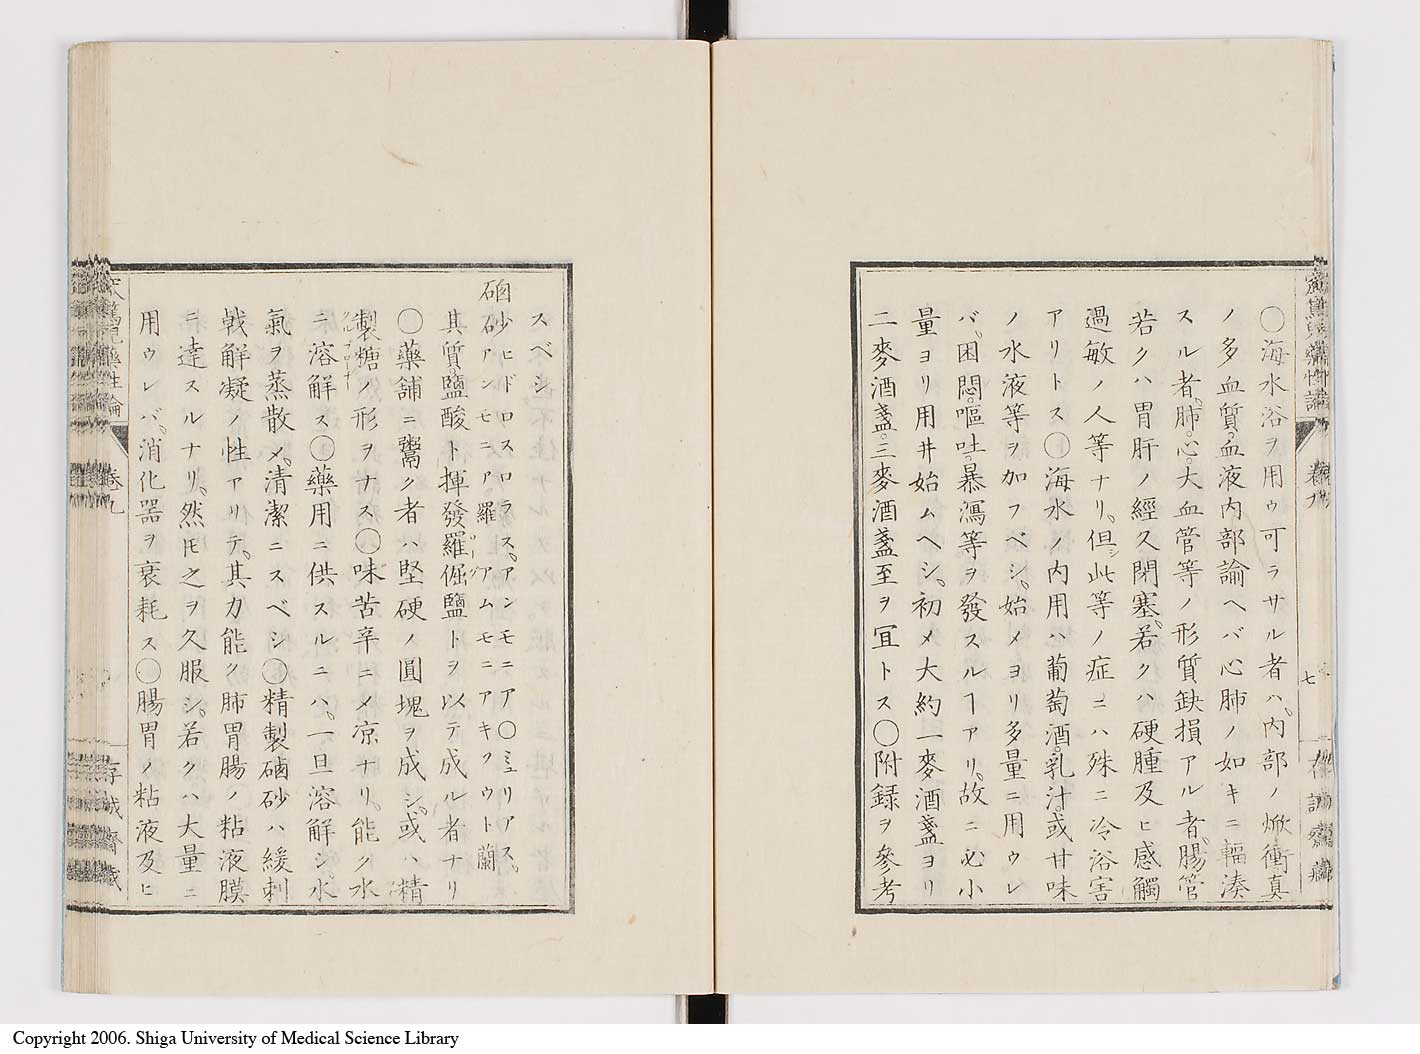 〇海水浴ヲ用ゥ可ラサル者ハ、内部ノ焮衝真
ノ多血質、血液内部諭ヘバ心肺ノ如キニ輻湊
スル者、肺、心、大血管等ノ形質缺損アル者、腸管
若クハ胃肝ノ經久閉塞、若クハ硬腫及ヒ感觸
過敏ノ人等ナリ、但シ此等ノ症ニハ殊ニ冷浴害
アリトス〇海水ノ内用ハ葡萄酒、乳汁、或甘味
ノ水液等ヲ加フベシ、始メヨリ多量ニ用ウレ
バ、困悶、嘔吐、暴瀉等ヲ發スルヿアリ、故ニ必小
量ヨリ用井始ムヘシ、初メ大約一麥酒盞ヨリ
二麥酒盞、三麥酒盞至ヲ冝トス〇附録ヲ參考
七
スベシ
硇砂ヒドロスロラス、アンモニア〇ミュリアス、
アンモニア羅アムモニアキフウト蘭
其質、鹽酸ト揮發羅倔鹽トヲ以テ成ル者ナリ
〇藥舗ニ鬻ク者ハ堅硬ノ圓塊ヲ成シ、或ハ精
製糖ノ形ヲナス〇味苦辛ニメ凉ナリ、能ク水
ニ溶解ス〇藥用ニ供スルニハ、一旦溶解シ、水
氣ヲ蒸散メ、清潔ニスベシ〇精製硇砂ハ緩刺
戟解凝ノ性アリテ、其力能ク肺胃腸ノ粘液膜
ニ達スルナリ、然圧之ヲ久服シ、若クハ大量ニ
用ウレバ、消化器ヲ衰耗ス〇腸胃ノ粘液及ヒ
藥性論
卷九
Copyright 2006. Shiga University of Medical Science Library